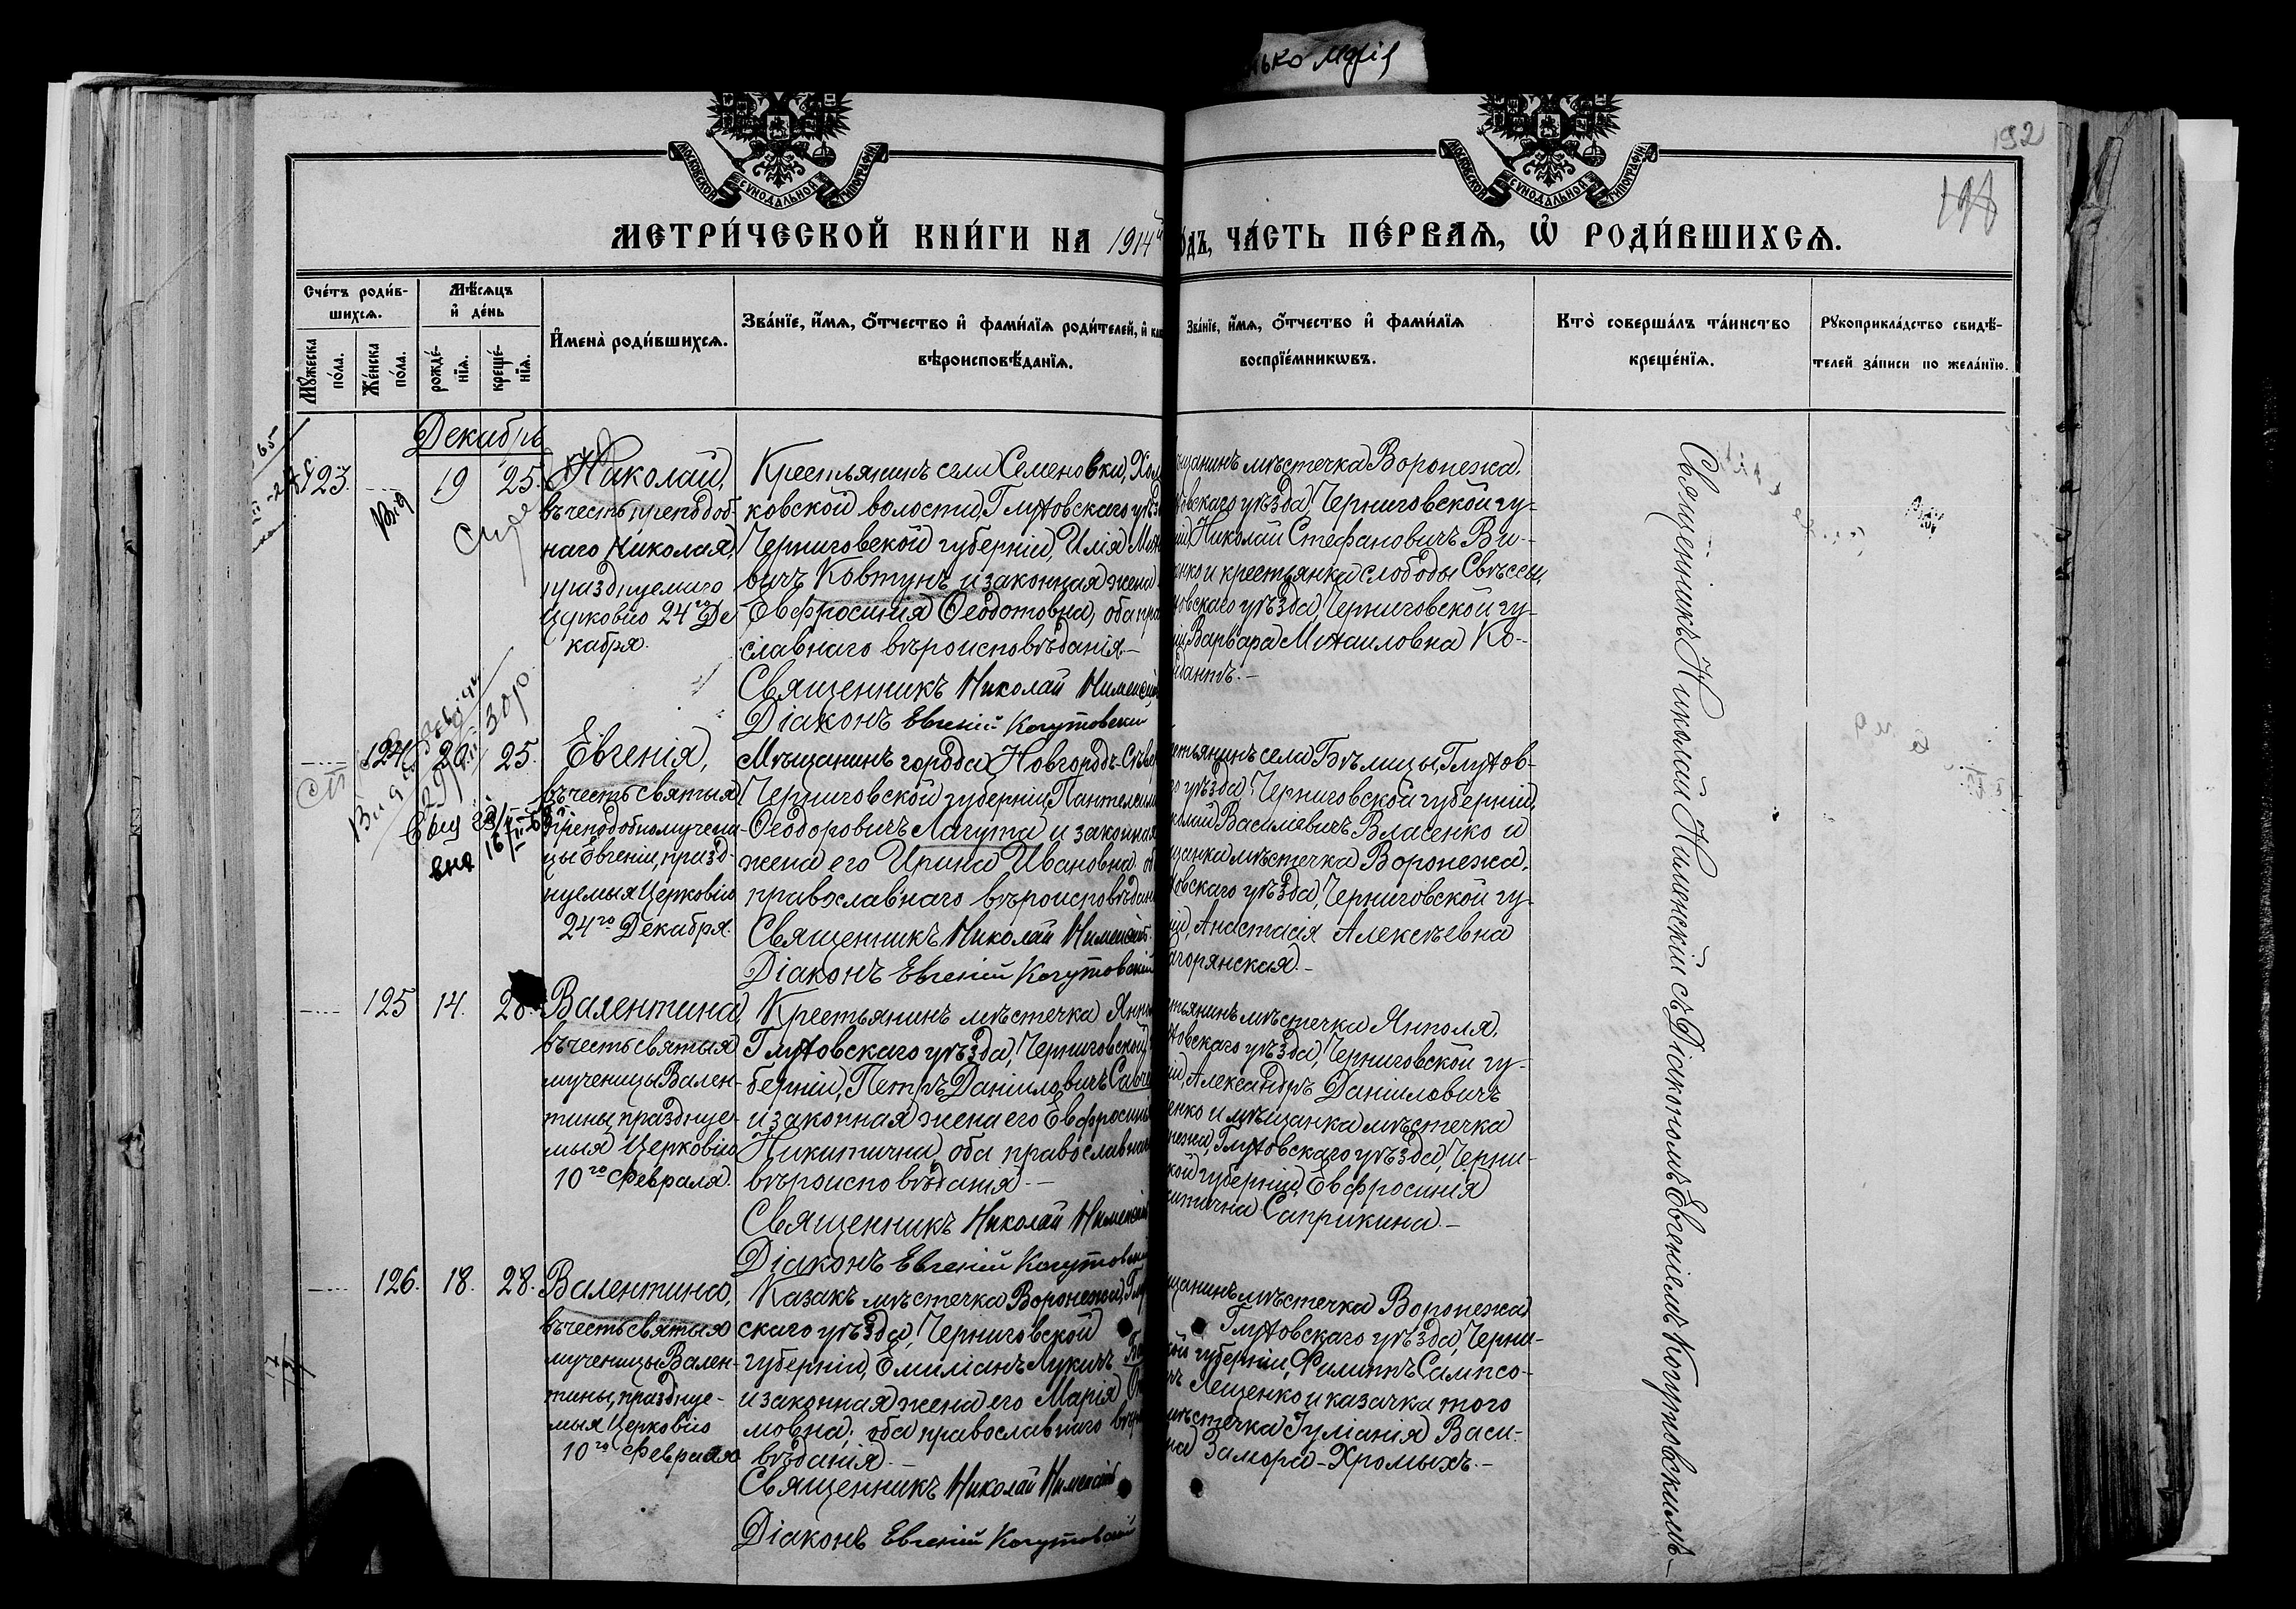 нько Марія
МОСКОВСКОЙ СѴНОДАЛЬНОЙ ТИПОГРАФІИ
МОСКОВСКОЙ СѴНОДАЛЬНОЙ ТИПОГРАФІИ
192
МЕТРИ́ЧЕСКОЙ КНИ́ГИ НА 1914й
о́дъ, ЧА́СТЬ ПЕ́РВАЯ, Ѡ҆ РОДИ́ВШИХСѦ.
Сче́тъ роди́в-
шихсѧ.
Мꙋ́жеска по́ла.
Же́нска по́ла.
Мѣ́сѧцъ и҆ де́нь
рожде́-
нїѧ.
креще́-
нїѧ.
И҆мена̀ роди́вшихсѧ.
Зва́нїе, и҆́мѧ, ѻ҆́тчество и҆ фами́лїѧ роди́телей, и҆ как
вѣроисповѣ́данїѧ.
Зва́нїе, и҆́мѧ, ѻ҆́тчество и҆ фами́лїѧ
воспрїе́мникѡвъ.
Кто̀ соверша́лъ та́инство
креще́нїѧ.
Рꙋкоприкла́дство свидѣ́-
телей за́писи по жела́нїю.
Декабрь
123. 19 25.
Николай,
въ честь преподоб-
наго Николая,
празднуемаго
Церковію 24го Де
кабря.
Крестьянинъ села Семеновки, Хол
ковской волости, Глуховскаго уѣзд
Черниговской губерніи, Илія Ми
вичъ Ковтунъ и законная жена
Евфросинія Ѳеодотовна, оба пра
славнаго вѣроисповѣданія.—
Священникъ Николай Нименскій
Діаконъ Евгеній Когутовски
щанинъ мѣстечка Воронежа,
овскаго уѣзда, Черниговской гу-
ніи, Николай Стефановичъ Ви-
енко и крестьянка слободы Свѣссы,
овскаго уѣзда, Черниговской гу-
ніи, Варвара Михаиловна Ко-
дантъ.—
124. 20 25.
Евгенія,
въ честь святыя
Преподобномучени-
цы Евгеніи, празд-
нуемыя Церковію
24го Декабря.
Мѣщанинъ города Новгородъ-Сѣвер
Черниговской губерніи, Пантелеим
Ѳеодоровичъ Лагута и законная
жена его Ирина Ивановна, об
православнаго вѣроисповѣдані
Священникъ Николай Нименскій
Діаконъ Евгеній Когутовскій
стьянинъ села Бѣлицы, Глухов-
го уѣзда, Черниговской губерніи,
колай Василіевичъ Власенко и
щанка мѣстечка Воронежа,
ховскаго уѣзда, Черниговской гу-
ніи, Анастасія Алексѣевна
агорянская.—
125 14. 28.
Валентина,
въ честь святыя
мученицы Вален-
тины, празднуе-
мыя Церковію
10го Февраля.
Крестьянинъ мѣстечка Ямпо
Глуховскаго уѣзда, Черниговской
берніи, Петръ Даніиловичъ Савче
и законная жена его Евфросині
Никитична, оба православна
вѣроисповѣданія.—
Священникъ Николай Нименскій
Діаконъ Евгеній Когутовски
тьянинъ мѣстечка Ямполя,
ховскаго уѣзда, Черниговской гу-
ніи, Александръ Даніиловичъ
енко и мѣщанка мѣстечка
нежа, Глуховскаго уѣзда, Черни-
ской губерніи, Евфросинія
китична Саприкина.—
126. 18. 28.
Валентина,
въ честь святыя
мученицы Вален-
тины, празднуе-
мыя Церковію
10го Февраля
Казакъ мѣстечка Воронежа, Глу
скаго уѣзда, Черниговской
губерніи, Емиліанъ Лукичъ
и законная жена его Марія
мовна, оба православнаго вѣро
вѣданія.—
Священникъ Николай Нименскій
Діаконъ Евгеній Когутовскій
щанинъ мѣстечка Воронежа,
Глуховскаго уѣзда, Черни-
кой губерніи, Филиппъ Сампсо-
чъ Лещенко и казачка того
мѣстечка Іуліанія Васи-
на Замора-Хромыхъ.—
Священникъ Николай Нименскій съ Діакономъ Евгеніемъ Когутовскимъ.—